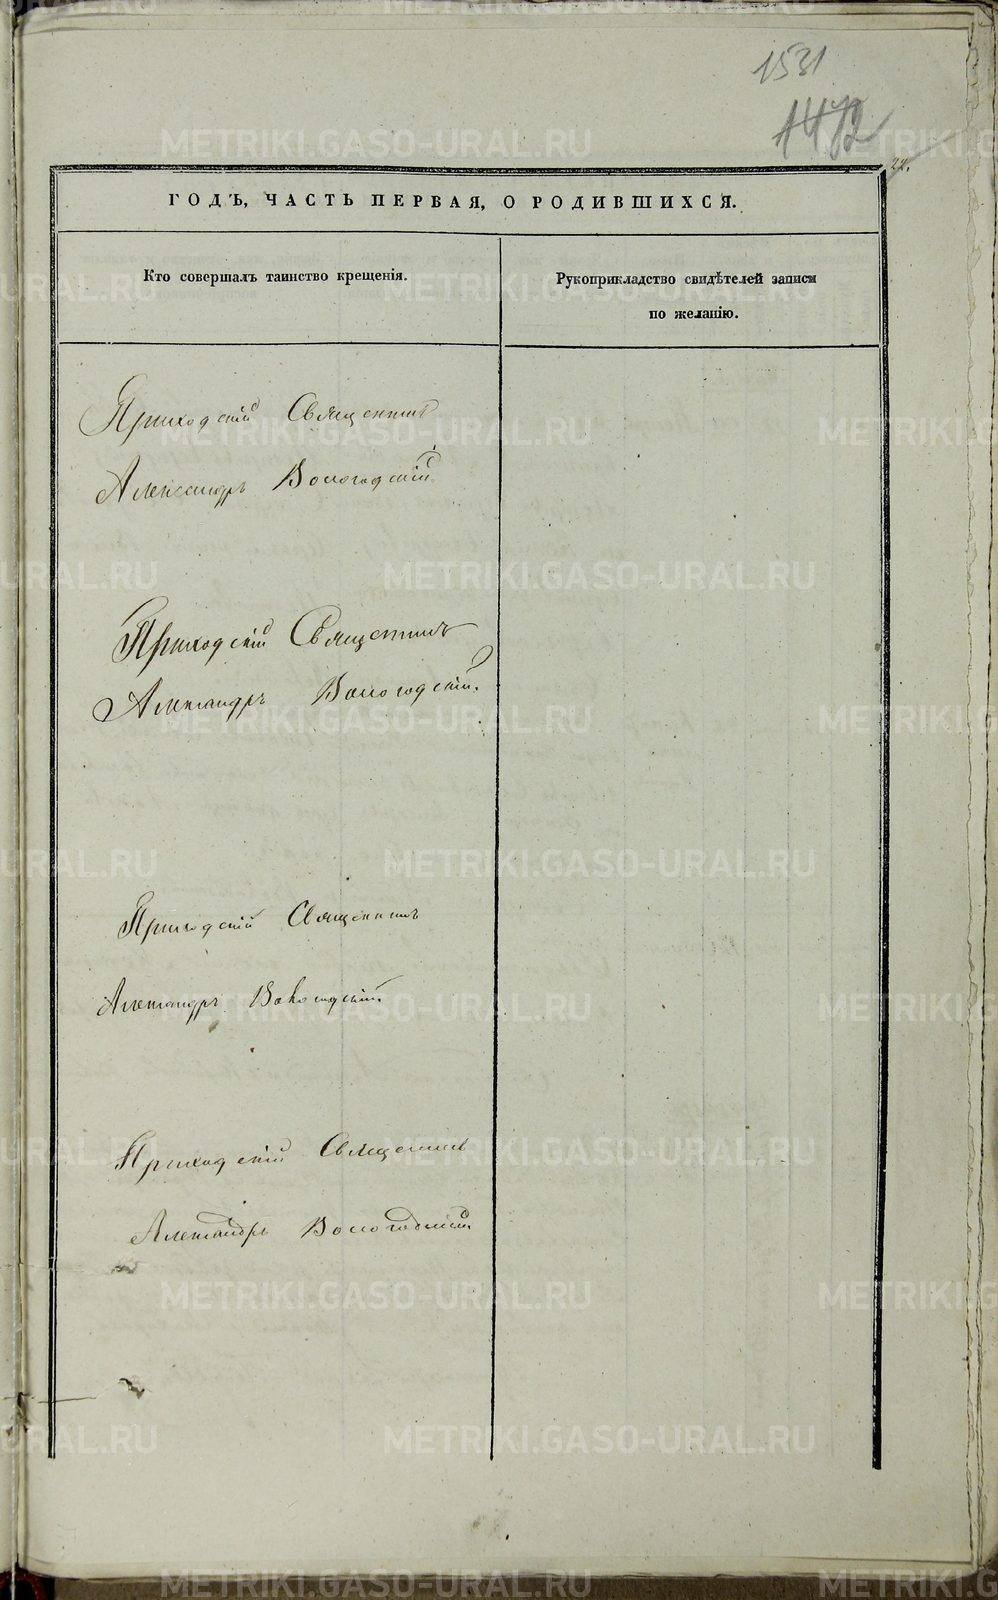 1531
1472
22.
ГОДЪ, ЧАСТЬ ПЕРВАЯ, О РОДИВШИХСЯ.
Кто совершалъ таинство крещенія.
Рукоприкладство свидѣтелей записи
по желанію.
Приходскій Священникъ
Александръ Вологодскій
Приходскій Священникъ
Александръ Вологодскій.
Приходскій Священникъ
Александръ Вологодскій.
Приходскій Священникъ
Александръ Вологодскій
METRIKI.GASO-URAL.RU